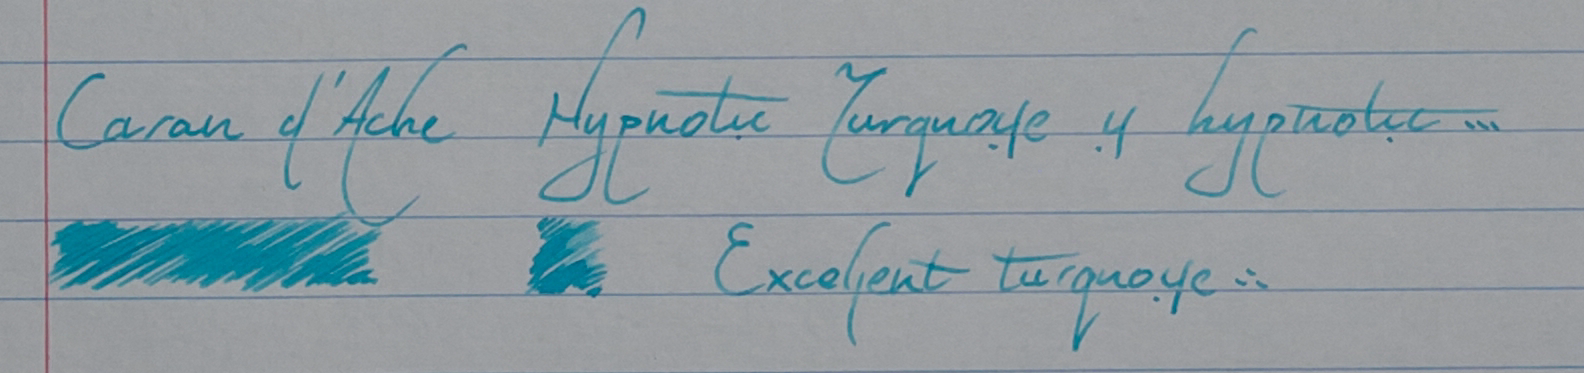 Caran d'Ache Hypnotic Turquoise is hypnotic...
Excellent turquoise :.